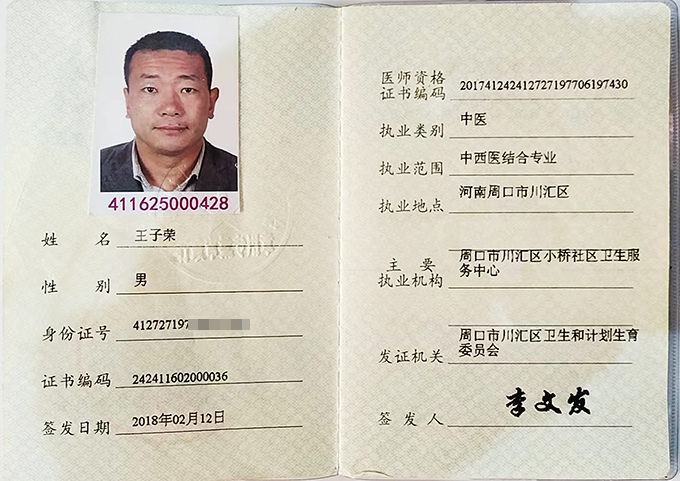 411625000428
姓名 王子荣
性别 男
身份证号 412727197
证书编码 242411602000036
签发日期 2018年02月12日
医师资格
证书编码 201741242412727197706197430
执业类别 中医
执业范围 中西医结合专业
执业地点 河南周口市川汇区
主要
执业机构 周口市川汇区小桥社区卫生服
务中心
发证机关 周口市川汇区卫生和计划生育
委员会
签发人 李文发